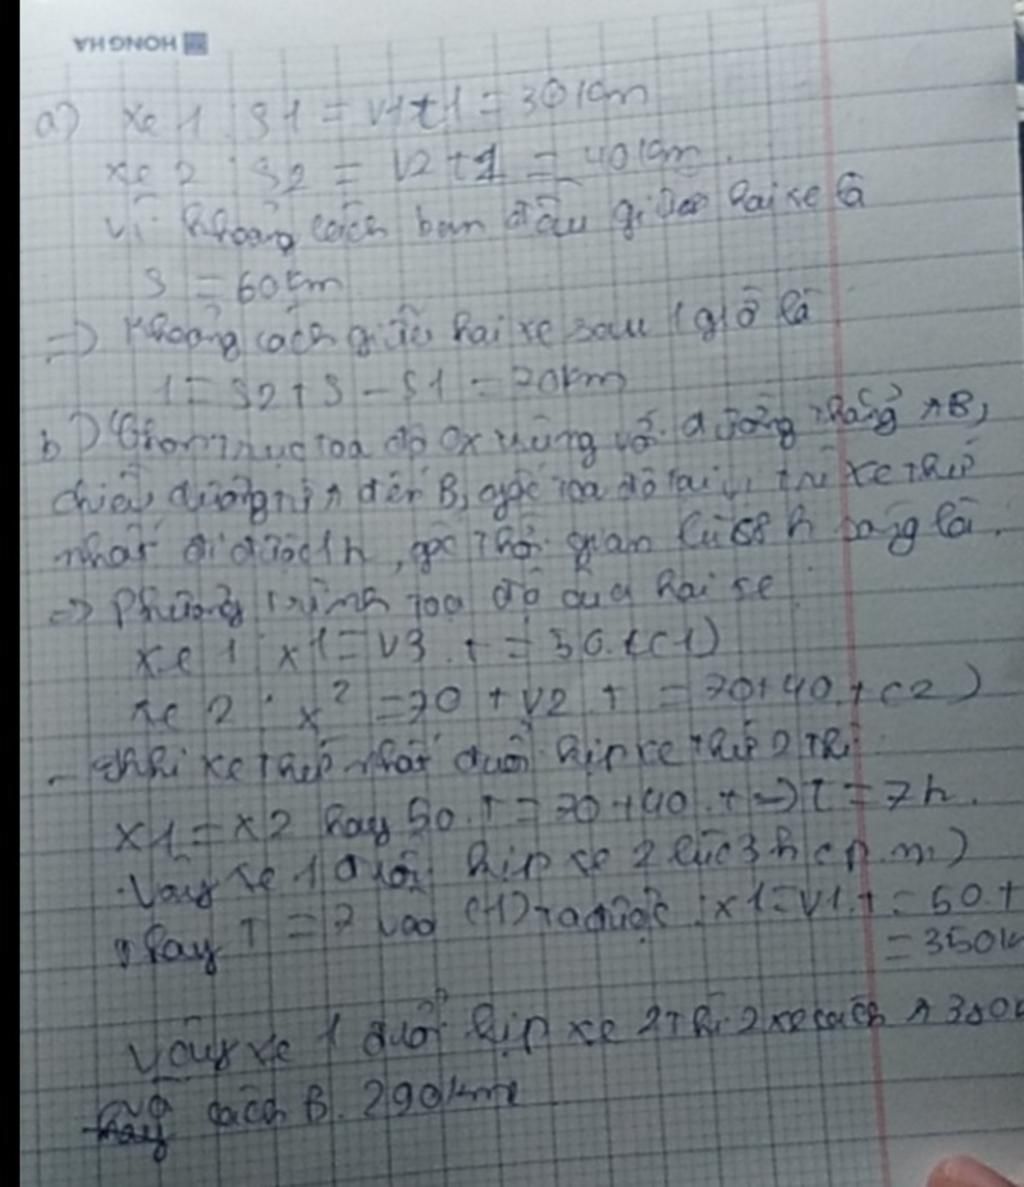 HONG HA
a) xe 1 : S1 = V1t1 = 30km
xe 2 : S2 = V2t1 = 40km.
Vì khoảng cách ban đầu giữa hai xe là
S = 60km
=> Khoảng cách giữa hai xe sau 1 giờ là
l = S2 + S - S1 = 70km
b) Chọn trục toạ độ Ox trùng với đường thẳng AB,
chiều dương từ A đến B, gốc toạ độ tại vị trí xe thứ
nhất đi được 1h, gốc thời gian lúc 8h sáng là.
=> Phương trình toạ độ của hai xe
xe 1 : x1 = V3.t = 50.t (1)
xe 2 : x2 = 70 + V2 t = 70+40.t (2)
- Khi xe thứ nhất đuổi kịp xe thứ 2 thì
x1 = x2 hay 50.t = 70+40.t => t = 7h.
Vậy xe 1 đuổi kịp xe 2 lúc 3h (p.m)
thay T = 7 vào (1) ta được : x1 = V1.t = 50.t
= 350k
Vậy xe 1 đuổi kịp xe 2 thì 2 xe cách A 380k
và cách B. 290km